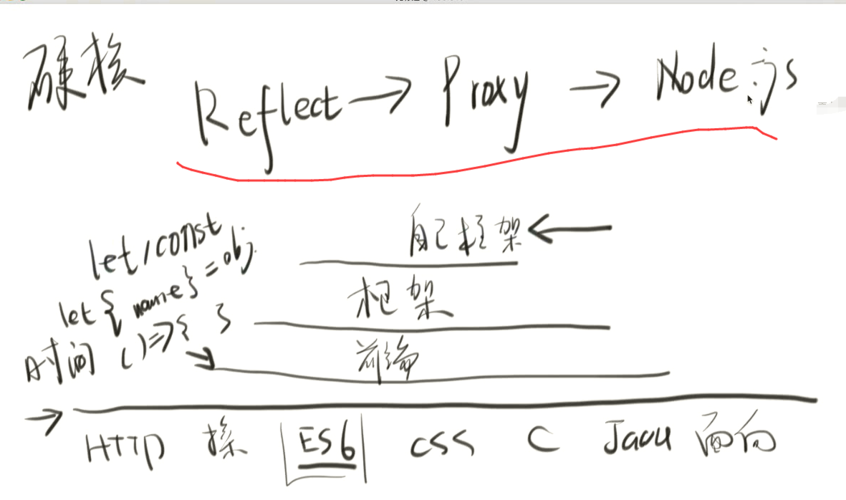 硬核
Reflect → Proxy → Node.js
let/const
let { name } = obj
时间 () => { }
自己框架 ←
框架
前端
→
HTTP 操 ES6 CSS C Java 面向